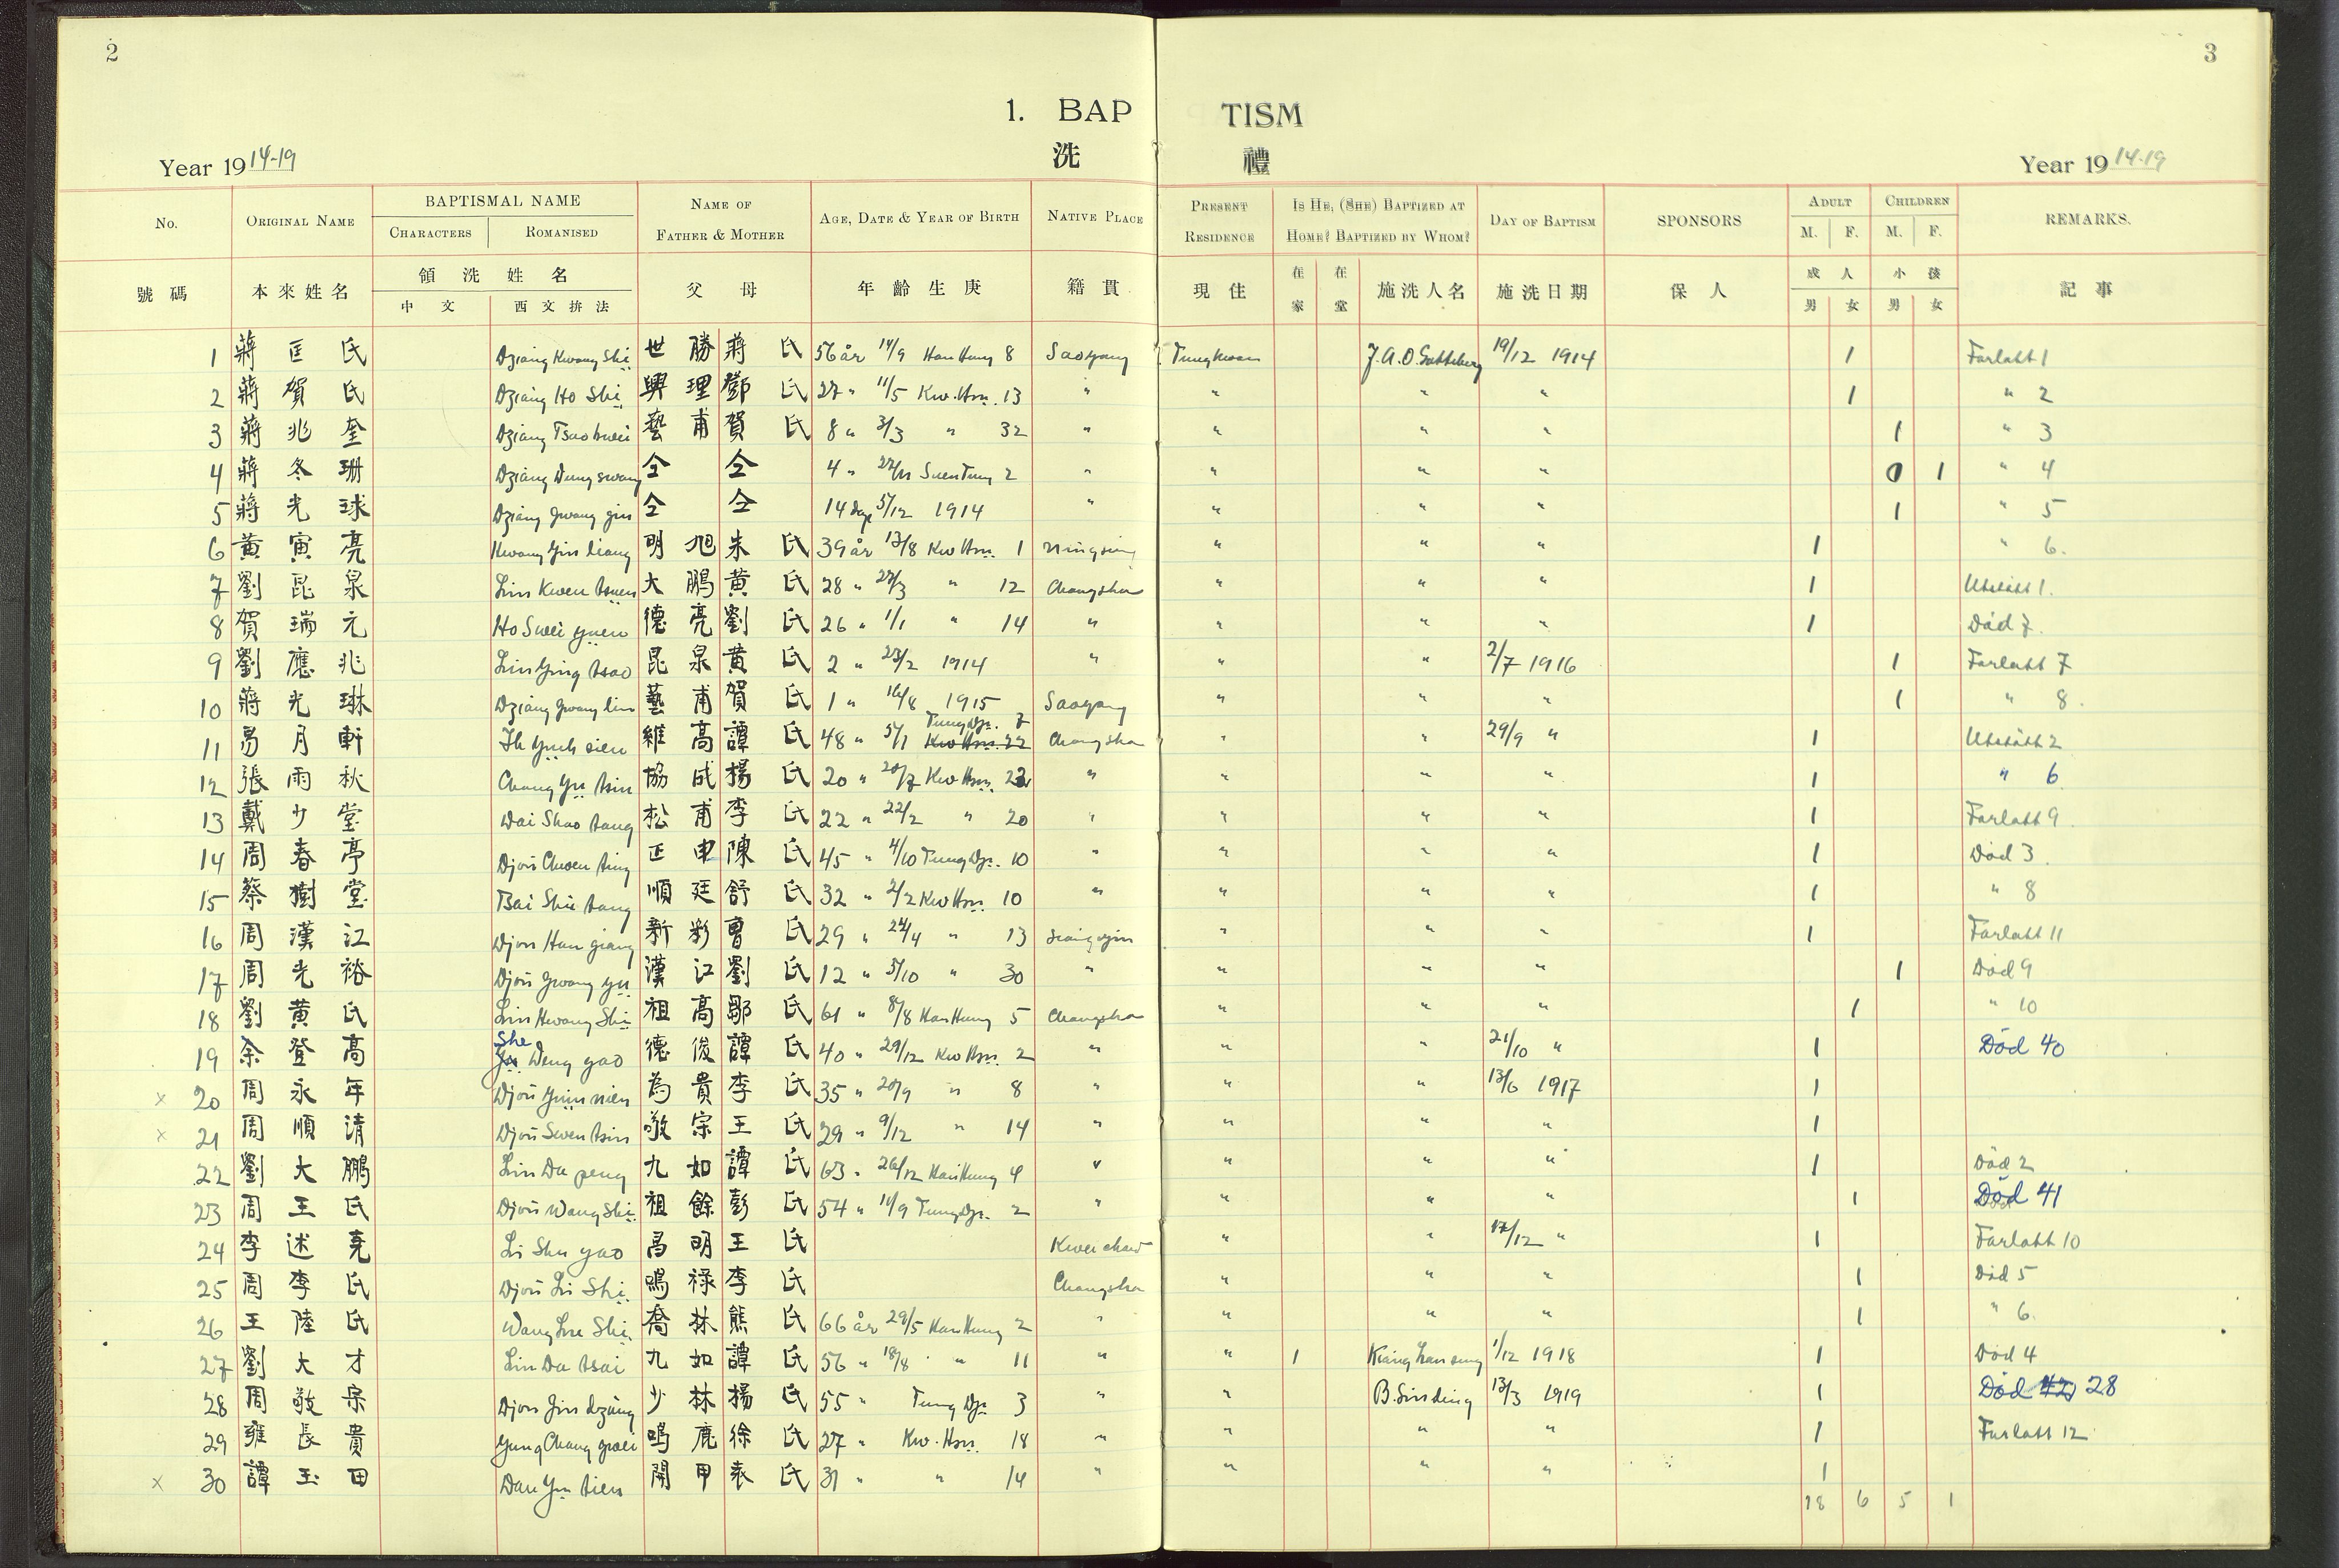 2
3
1. BAPTISM
洗 禮
Year 1914-19
Year 1914-19
No. ORIGINAL NAME BAPTISMAL NAME CHARACTERS ROMANISED NAME OF FATHER & MOTHER AGE, DATE & YEAR OF BIRTH NATIVE PLACE PRESENT RESIDENCE IS HE, (SHE) BAPTIZED AT HOME? BAPTIZED BY WHOM? DAY OF BAPTISM SPONSORS ADULT M. F. CHILDREN M. F. REMARKS.
號碼 本來姓名 領洗姓名 中文 西文拚法 父母 年齡生庚 籍貫 現住 在家 在堂 施洗人名 施洗日期 保人 成人 男 女 小孩 男 女 記事
1 蔣匡氏 Dziang Kwang Shi 世勝 蔣氏 56 år 14/9 Han Hung 8 Saoyang Tungkwan 19/12 1914 1 Farlatt 1
2 蔣賀氏 Dziang Ho Shi 興理 鄧氏 27 " 11/5 Kw. Hsü. 13 " " " " 1 " 2
3 蔣兆奎 Dziang Tsao kwei 藝甫 賀氏 8 " 3/3 " 32 " " " " 1 " 3
4 蔣冬珊 Dziang Dung swang 仝 仝 4 " Suen Tung 2 " " " " 1 " 4
5 蔣光球 Dziang gwang 仝 仝 14 dage 5/12 1914 " " " " 1 " 5
6 黃寅亮 Hwang Yin liang 明旭 朱氏 39 år 13/8 Kw Hsü. 1 " " " 1 " 6.
7 劉昆泉 Liu Kwen tsuen 大鵬 黃氏 28 " 27/3 " 12 Changsha " " " 1 Utslått 1.
8 賀瑞元 Ho Swei yuen 德亮 劉氏 26 " 1/1 " 14 " " " " 1 Död 7.
9 劉應兆 Liu Ying tsao 昆泉 黃氏 2 " 23/2 1914 " " " 2/7 1916 1 Farlatt 7
10 蔣光琳 Dziang gwang lin 藝甫 賀氏 1 " 16/8 1915 Saoyang " " " 1 " 8.
11 易月軒 Ih Yueh sien 維高 譚氏 48 " 5/1 Tung Dz. 7 Kw Hsü. 22 Changsha " " 29/9 " 1 Utslått 2
12 張雨秋 Chang Yü tsiu 協成 楊氏 20 " 20/7 Kw Hsü. " " " " 1 " 6
13 戴少堂 Dai Shao tang 松甫 李氏 22 " 22/2 " 20 " " " " 1 Farlatt 9.
14 周春亭 Djou Chwen ting 正申 陳氏 45 " 4/10 Tung Dz. 10 " " " " 1 Död 3.
15 蔡樹堂 Tsai Shu tang 順廷 舒氏 32 " 2/2 Kw Hsü. 10 " " " " 1 " 8
16 周漢江 Djou Han giang 新彩 曹氏 29 " 24/4 " 13 " " " 1 Farlatt 11
17 周光裕 Djou gwang yü 漢江 劉氏 12 " 5/10 " 30 " " " " 1 Död 9
18 劉黃氏 Liu Hwang Shi 祖高 鄒氏 61 " 8/8 Han Hung 5 Changsha " " " 1 " 10
19 余登高 She Yü Deng gao 德俊 譚氏 40 " 29/12 Kw Hsü. 2 " " " 21/10 " 1 Död 40
x 20 周永年 Djou Yuin nien 為貴 李氏 35 " 20/9 " 8 " " " 13/6 1917 1
x 21 周順清 Djou Swen tsin 敬宗 王氏 29 " 9/12 " 14 " " " " 1
22 劉大鵬 Liu Da peng 九如 譚氏 63 " 26/12 Han Hung 4 " " " " 1 Död 2
23 周王氏 Djou Wang Shi 祖餘 彭氏 54 " 14/9 Tung Dz. 2 " " " " 1 Död 41
24 李述堯 Li Shu yao 昌明 王氏 Kweichow " " 17/12 " 1 Farlatt 10
25 周李氏 Djou Li Shi 鳴祿 李氏 Changsha " " " 1 Död 5
26 王陸氏 Wang Lu Shi 喬林 熊氏 66 år 29/5 Han Hung 2 " " " " 1 " 6.
27 劉大才 Liu Da tsai 九如 譚氏 56 " 18/8 " 11 " " 1 1/12 1918 1 Död 4
28 周敬宗 Djou Jin dzung 少林 楊氏 55 " Tung Dz. 3 " " B. Sinding 13/3 1919 1 Död 42 28
29 雍長貴 Yung Chang gwei 鳴鹿 徐氏 27 " Kw. Hsü. 18 " " " " 1 Farlatt 12
x 30 譚玉田 Dan Yu tien 開甲 袁氏 31 " " 14 " " " " 1
18 6 5 1